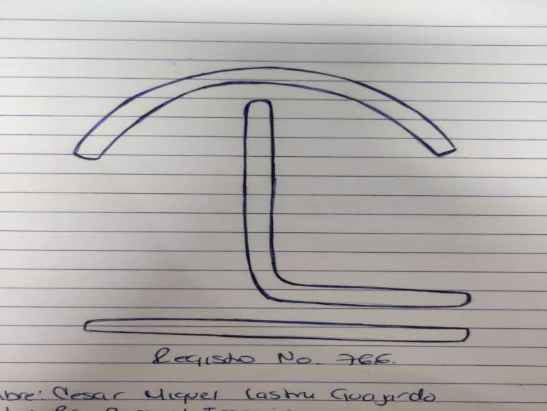 L
Registro No. 766.
bre: Cesar Miguel Castru Guajardo